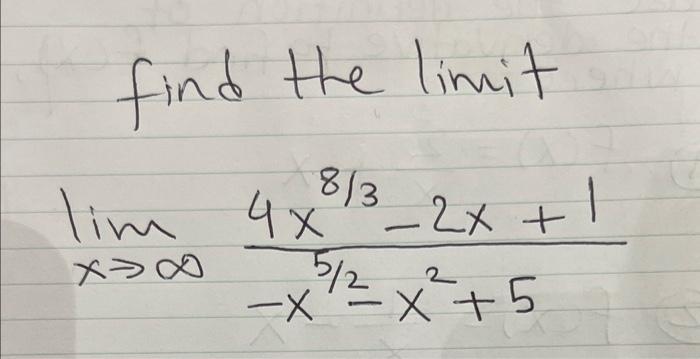 find the limit
lim x→∞ (4x^(8/3) - 2x + 1) / (-x^(5/2) - x^2 + 5)